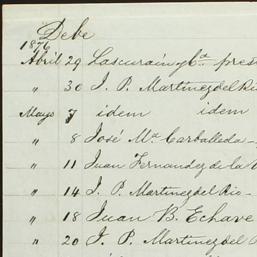 Debe
1876
Abril 29 Lascurain y Cª pres
" 30 J. P. Martinez del Rio
Mayo 7 idem idem
" 8 José Mª Carballeda
" 11 Juan Fernandez de la
" 14 J. P. Martinez del Rio
" 18 Juan B. Echave
" 20 J. P. Martinez del